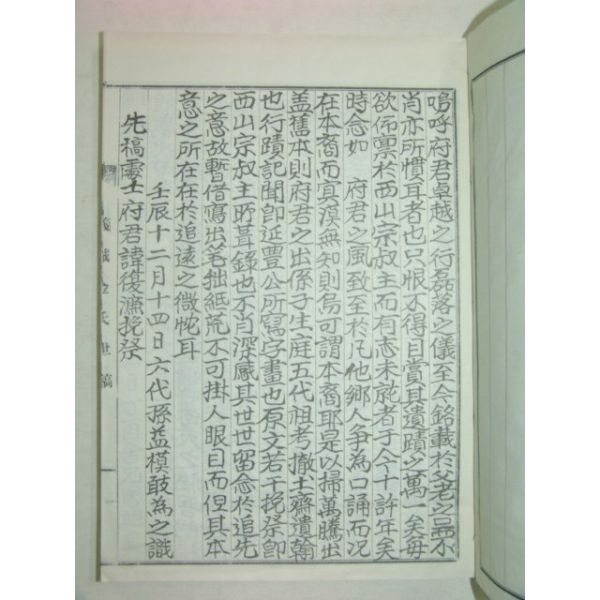 嗚呼府君卓越之行磊落之儀至今銘載於父老之口不
肖亦所慣耳者也只恨不得目賞其遺蹟之萬一矣毋
欲侕稟於西山宗叔主而有志未就者于今十許年矣
時念如 府君之風致至於凡他鄉人爭為口誦而况
在本裔而冥漠無知則烏可謂本裔耶是以掃萬騰出
盖舊本則府君之出係子生庭五代祖考撤土齋遺翰
也行蹟記聞卽延豐公所寫字畫也原文若干挽祭卽
西山宗叔主所葺錄也不肖深感其世世留念於追先
之意故暫借寫出笔拙紙荒不可掛人眼目而但其本
意之所在在於追遠之微忱耳
壬辰十二月十四日六代孫益模敢為之識
先稿處士府君諱復濂挽祭
氏世稿